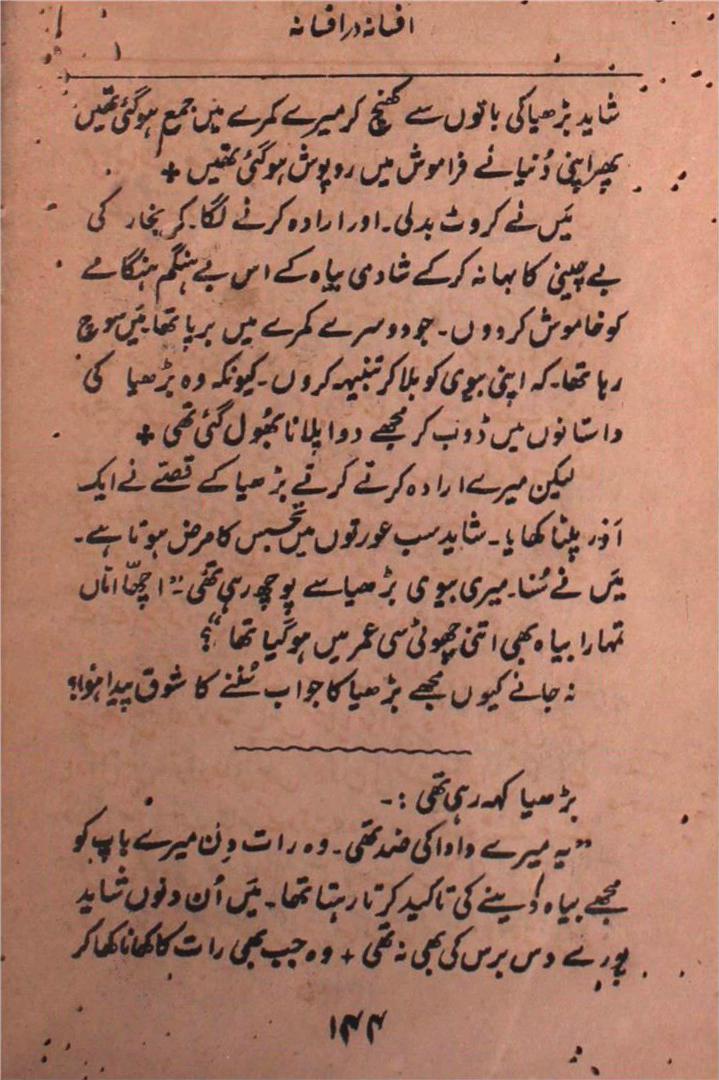 افسانہ در افسانہ
شاید بڑھیا کی باتوں سے کھنچ کر میرے کمرے میں جمع ہو گئی تھیں
پھر اپنی دُنیائے فراموش میں روپوش ہو گئی تھیں +
مَیں نے کروٹ بدلی۔ اور ارادہ کرنے لگا۔ کہ بخار کی
بے چینی کا بہانہ کر کے شادی بیاہ کے اس بے ہنگم ہنگامے
کو خاموش کر دوں۔ جو دوسرے کمرے میں برپا تھا۔ مَیں سوچ
رہا تھا۔ کہ اپنی بیوی کو بلا کر تنبیہہ کروں۔ کیونکہ وہ بڑھیا کی
داستانوں میں ڈوب کر مجھے دوا پلانا بھُول گئی تھی +
لیکن میرے ارادہ کرتے کرتے بڑھیا کے قصّے نے ایک
اَور پلٹا کھایا۔ شاید سب عورتوں میں تجسّس کا مرض ہوتا ہے۔
مَیں نے سُنا۔ میری بیوی بڑھیا سے پوچھ رہی تھی۔ "اچھّا امّاں
تمہارا بیاہ بھی اتنی چھوٹی سی عمر میں ہو گیا تھا"؟
نہ جانے کیوں مجھے بڑھیا کا جواب سُننے کا شوق پیدا ہُوا؟
بڑھیا کہہ رہی تھی :۔
"یہ میرے دادا کی ضد تھی۔ وہ رات دِن میرے باپ کو
مجھے بیاہ دینے کی تاکید کرتا رہتا تھا۔ مَیں اُن دنوں شاید
پورے دس برس کی بھی نہ تھی + وہ جب بھی رات کا کھانا کھا کر
۱۴۴